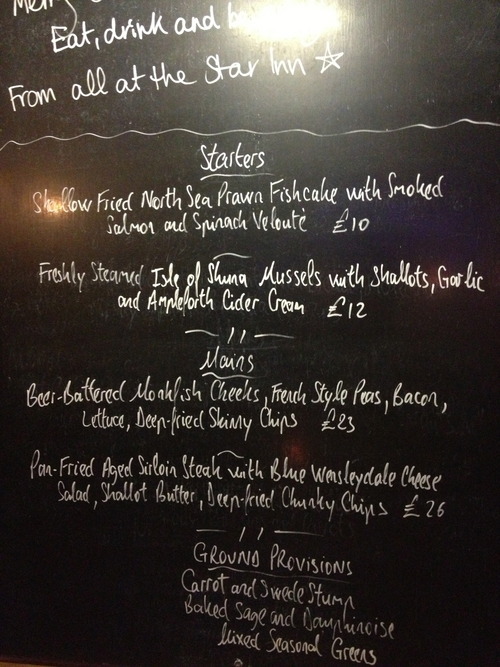 Eat, drink and
From all at the Star Inn
Starters
Shallow Fried North Sea Prawn Fishcake with Smoked
Salmon and Spinach Velouté £10
Freshly Steamed Isle of Shuna Mussels with Shallots, Garlic
and Ampleforth Cider Cream £12
Mains
Beer-Battered Monkfish Cheeks, French Style Peas, Bacon,
Lettuce, Deep-fried Skinny Chips £23
Pan-Fried Aged Sirloin Steak with Blue Wensleydale Cheese
Salad, Shallot Butter, Deep-fried Chunky Chips £26
GROUND PROVISIONS
Carrot and Swede Stump
Baked Sage and Dauphinoise
Mixed Seasonal Greens